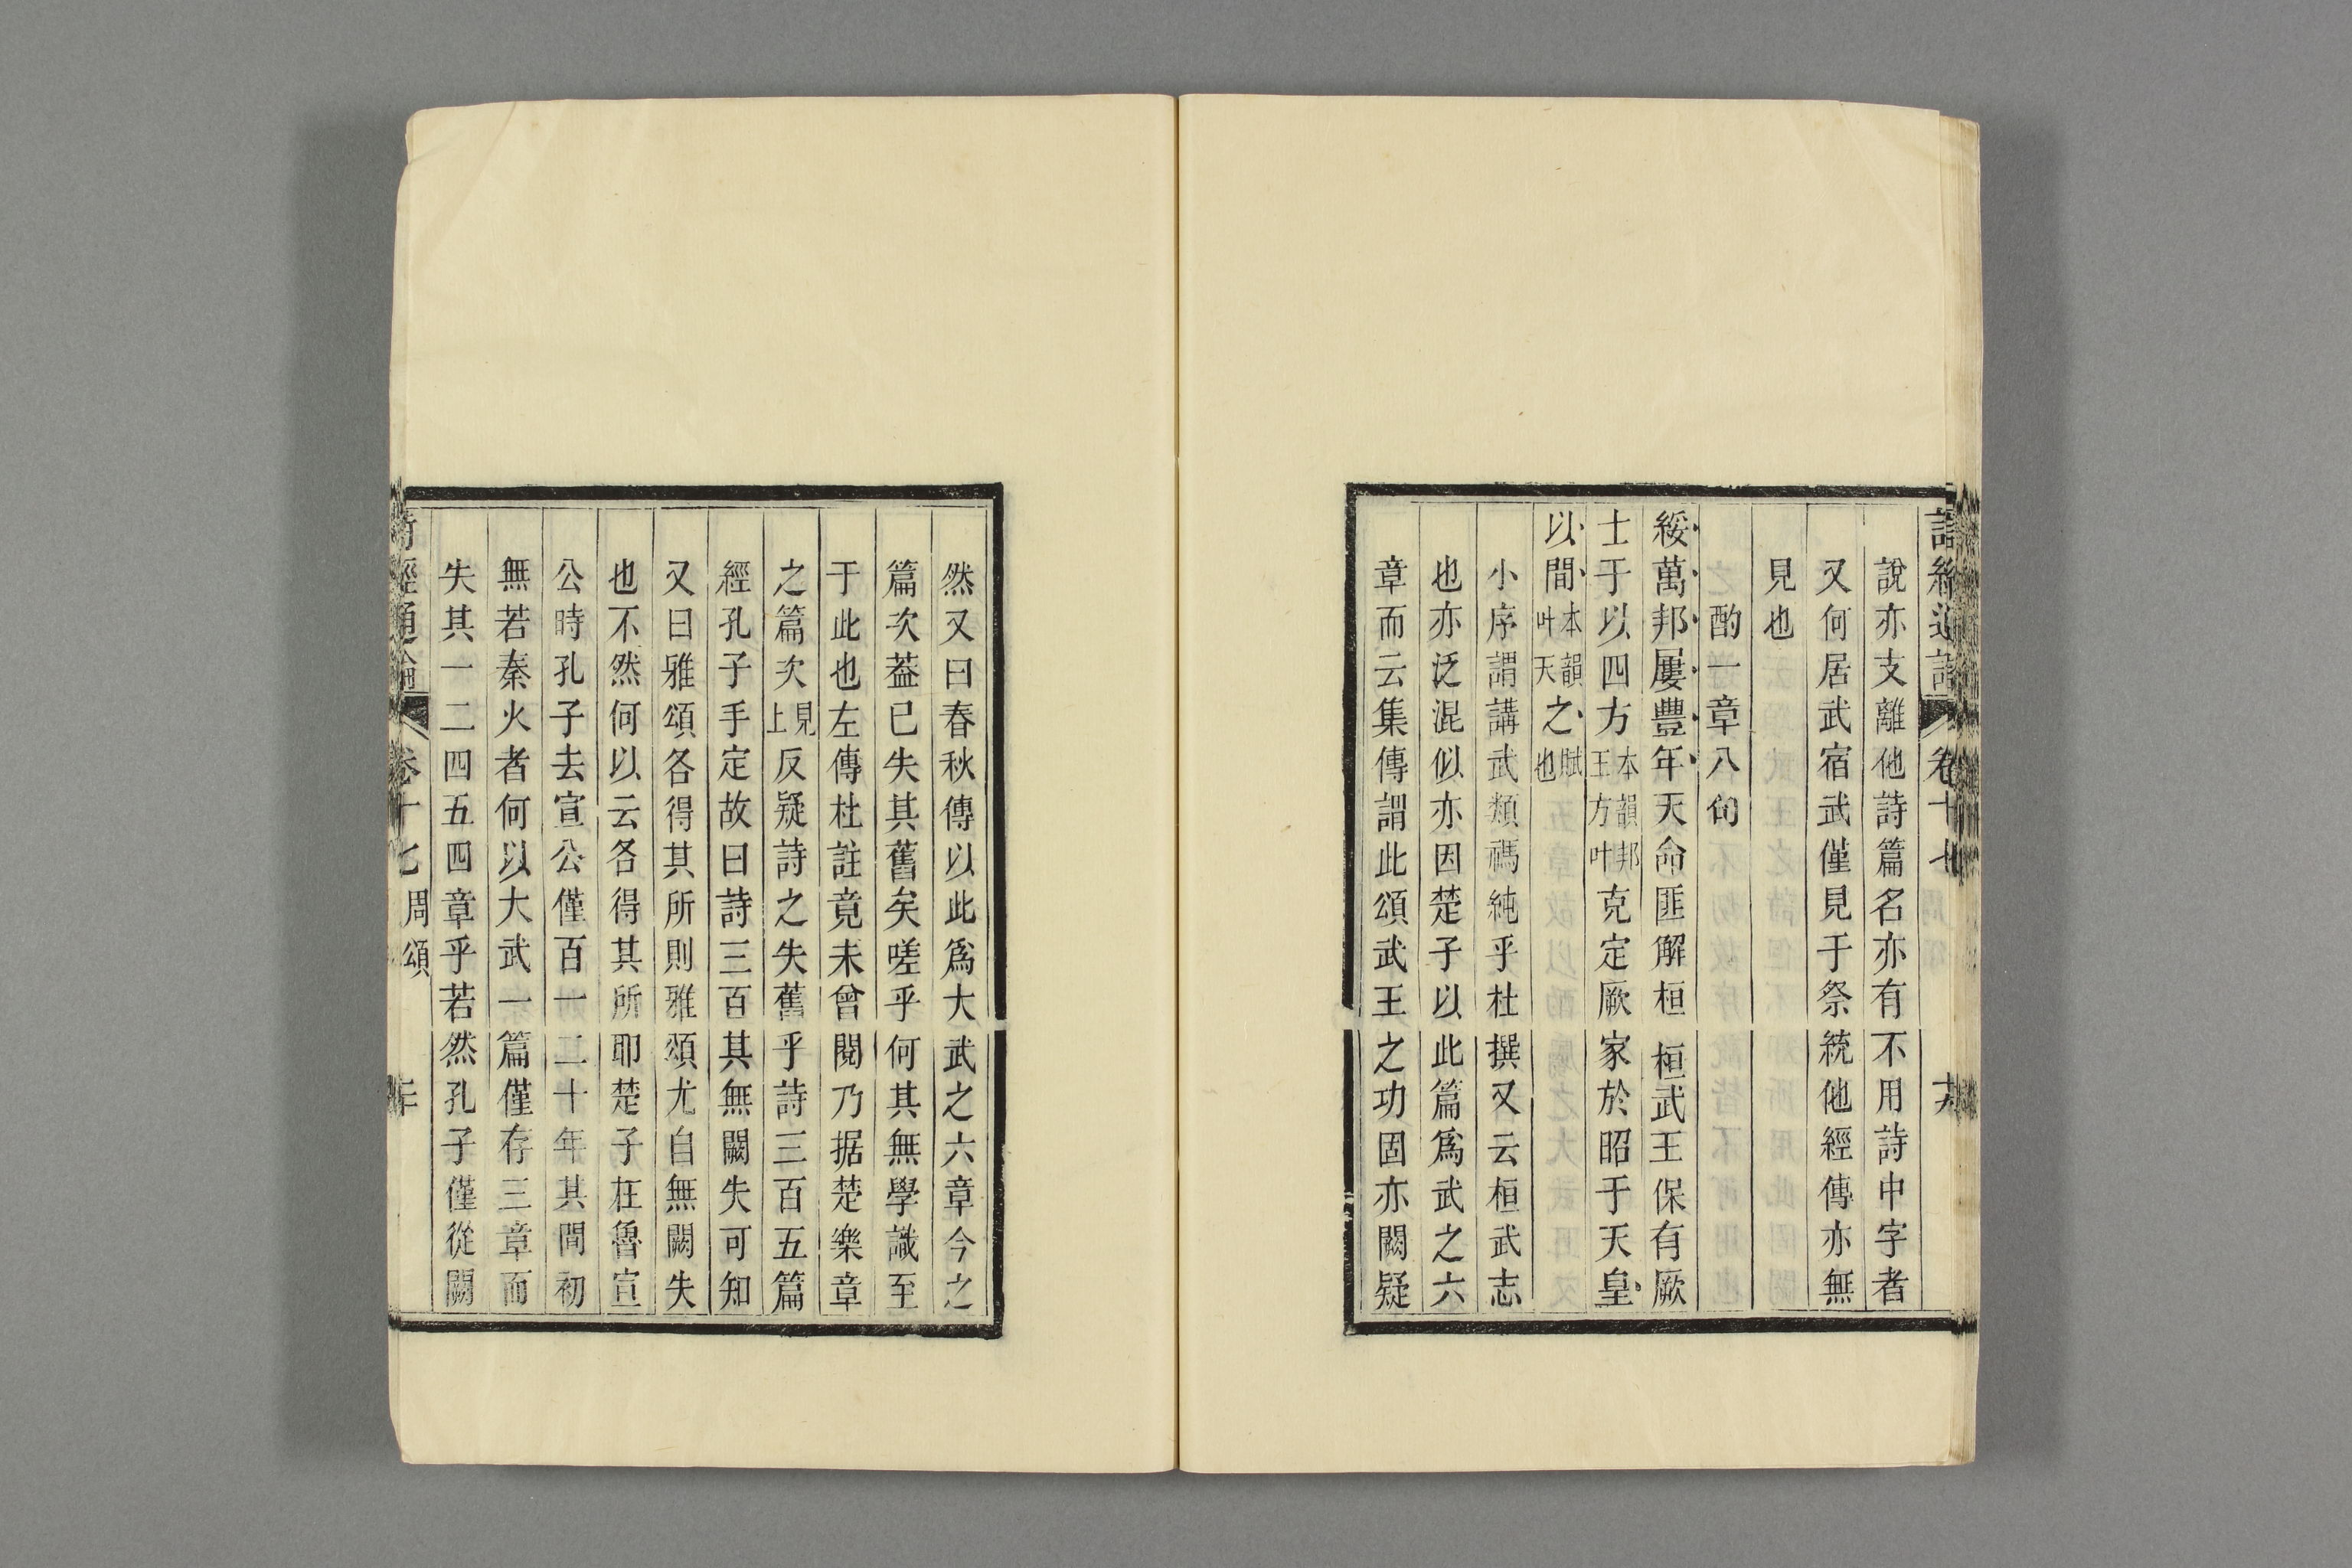 詩經通論
卷十七
說亦支離他詩篇名亦有不用詩中字者
又何居武宿武僅見于祭統他經傳亦無
見也
酌一章八句
綏萬邦屢豐年天命匪解桓桓武王保有厥
士于以四方本韻邦王方叶克定厥家於昭于天皇
以間本韻叶天之賦也
小序謂講武類禡純乎杜撰又云桓武志
也亦泛混似亦因楚子以此篇爲武之六
章而云集傳謂此頌武王之功固亦闕疑
然又曰春秋傳以此爲大武之六章今之
篇次葢已失其舊矣嗟乎何其無學識至
于此也左傳杜註竟未曾閱乃据楚樂章
之篇次見上反疑詩之失舊乎詩三百五篇
經孔子手定故曰詩三百其無闕失可知
又曰雅頌各得其所則雅頌尤自無闕失
也不然何以云各得其所耶楚子在魯宣
公時孔子去宣公僅百一二十年其間初
無若秦火者何以大武一篇僅存三章而
失其一二四五四章乎若然孔子僅從闕
詩經通論
卷十七 周頌